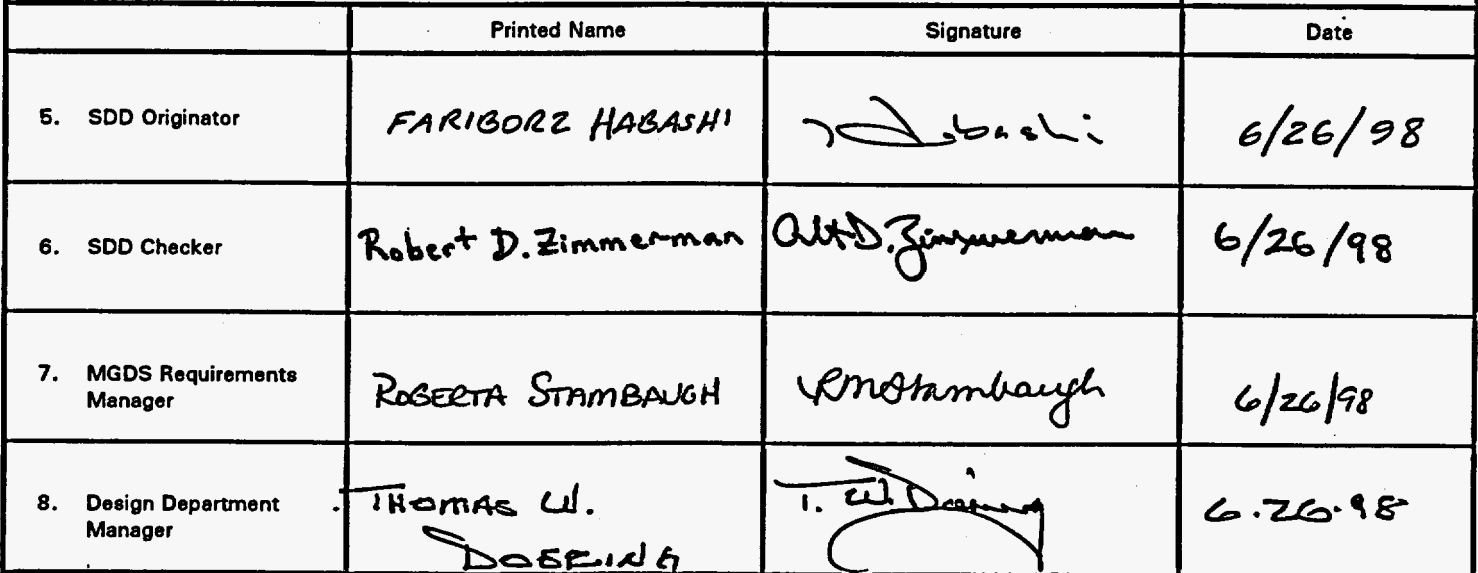 Printed Name Signature Date
5. SDD Originator FARIBORZ HABASHI Habashi 6/26/98
6. SDD Checker Robert D. Zimmerman D. Zimmerman 6/26/98
7. MGDS Requirements
Manager ROBERTA STAMBAUGH RMStambaugh 6/26/98
8. Design Department
Manager THOMAS W.
DOERING T. W. Doering 6.26.98